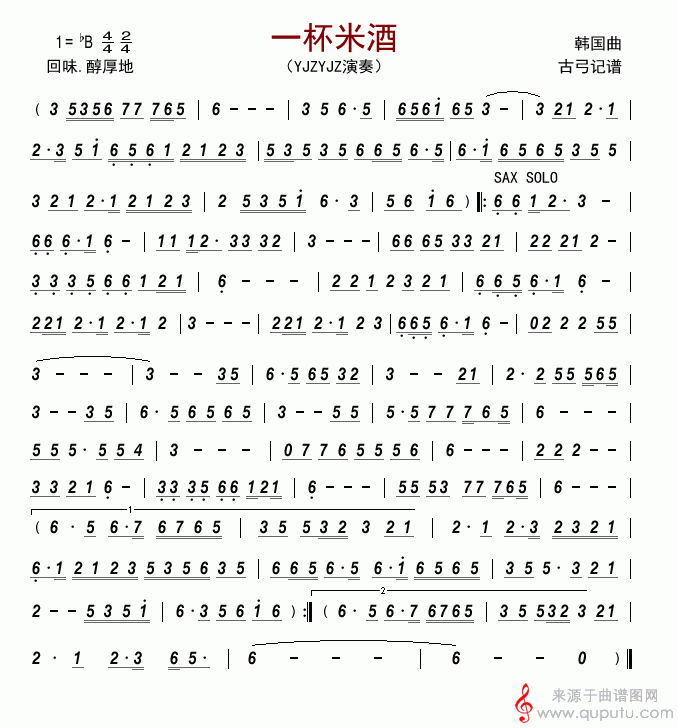 一杯米酒
1=♭B 4/4 2/4
韩国曲
回味.醇厚地
(YJZYJZ演奏)
古弓记谱
( 3 5356 77 765 | 6 - - - | 3 5 6· 5 | 6561 65 3 - | 3 21 2·1 |
2·3 51 6561 2123 | 535356656·5 | 6·1 65656355 |
SAX SOLO
321 2·1 2123 | 2 5351 6·3 | 56 16 ) ‖: 6612·3 |
66 6·1 6- | 11 12· 33 32 | 3 - - - | 66 65 33 21 | 22 21 2- - |
33 3566121 | 6 - - - | 221 2321 | 6656·1 | 2 - - - |
221 2·1 2·1 2 | 3 - - - | 221 2·1 2 3 | 665 6·1 6- | 022255 |
3 - - - | 3 - - 35 | 6·56532 | 3 - - 21 | 2·2 55 565 |
3 - - 35 | 6·56565 | 3 - - 55 | 5·577765 | 6 - - - |
555· 554 | 3 - - - | 0776 5556 | 6 - - - | 222- - |
33 2216- | 33 35 66 121 | 6 - - - | 5553 77 765 | 6 - - - |
1
( 6·5 6·7 6765 | 35 532 3 21 | 2·1 2·3 2321 |
6·1 2123535635 | 656·56·1 | 656561 | 355·321 |
2
2- - 5351 | 6·3561 6 ) :‖ ( 6·56·76765 | 35532321 |
2·1 2·3 65· | 6 - - - | 6 - - 0 ) ‖
来源于曲谱图网
www.quputu.com